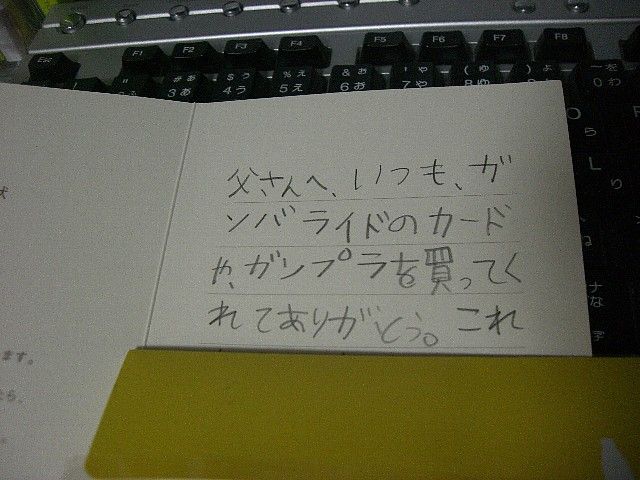 父さんへ、いつも、ガ
ンバライドのカード
や、ガンプラを買ってく
れてありがとう。これ
ます。
F1
F2
F3
F4
F5
F6
F7
F8
3あ
4う
5え
6お
7や
L
り
ら